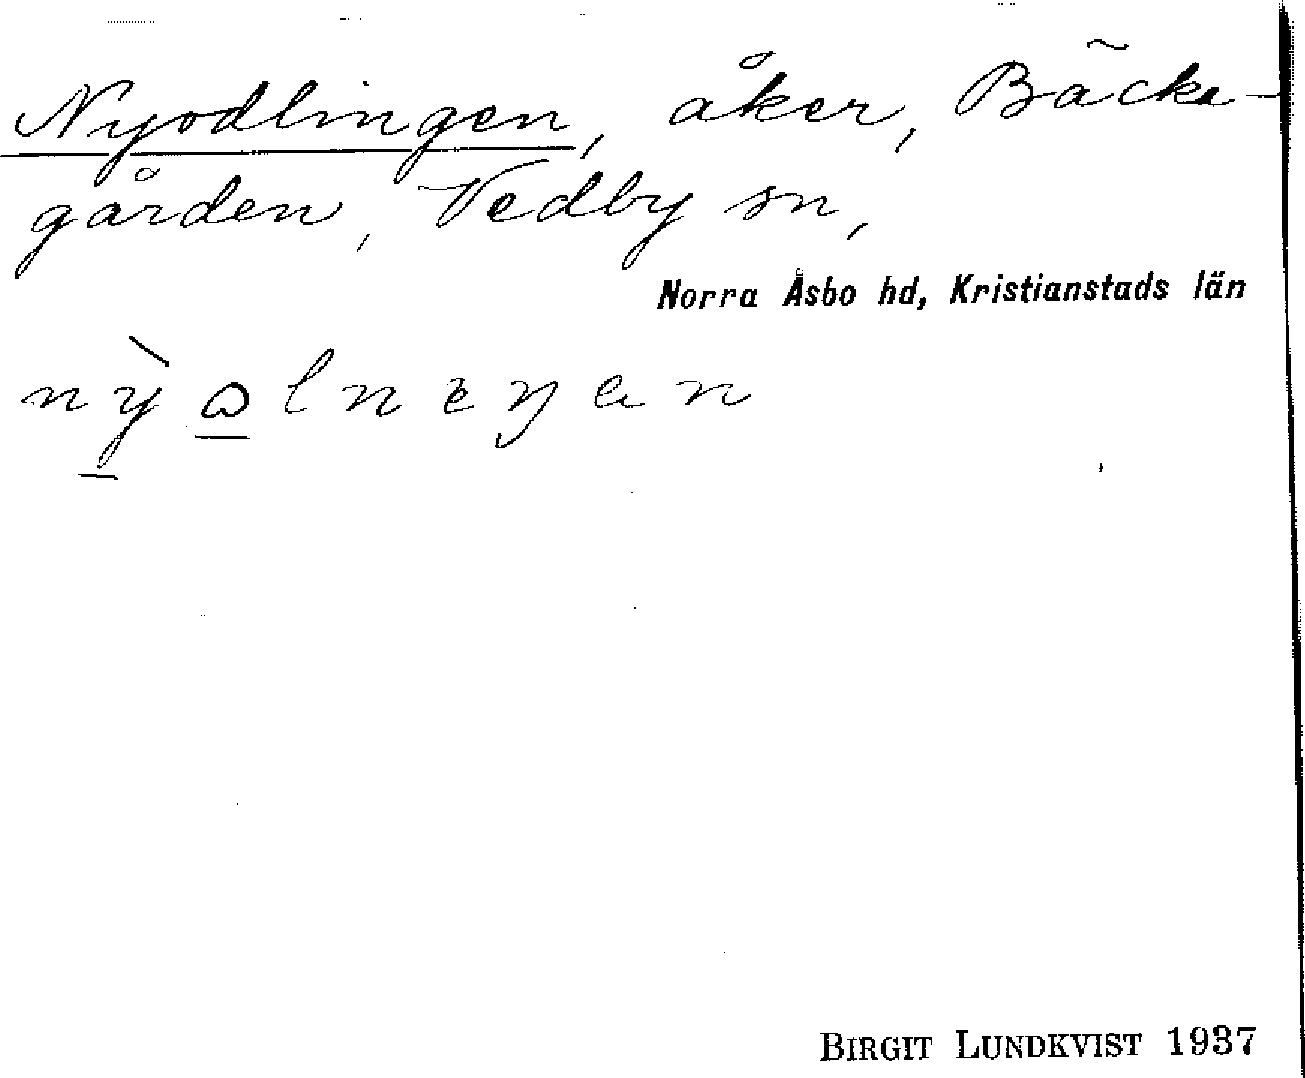 Nyodlingen, åker, Bäcka-
gården, Vedby sn,
Norra Åsbo hd, Kristianstads län
BIRGIT LUNDKVIST 1937